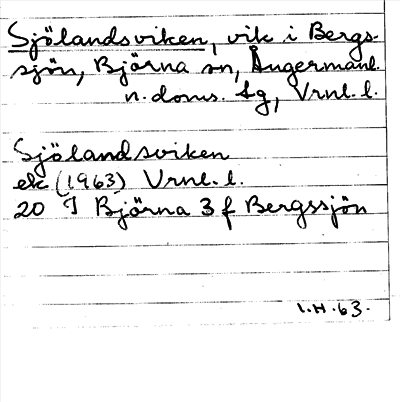 Sjölandsviken, vik i Bergs-
sjön, Björna sn, Ångermanl.
n. doms. tg, Vrnl. l.
Sjölandsviken
ek (1963) Vrnl. l.
20 I Björna 3 f Bergssjön
I.H.63.